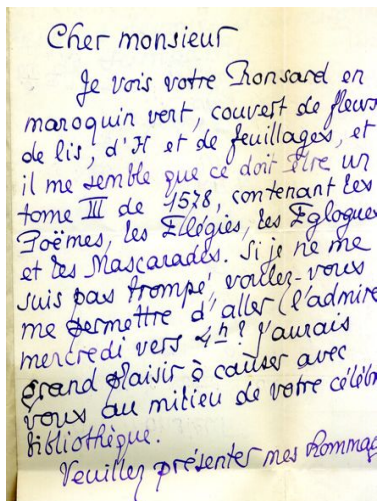 Cher monsieur
Je vois votre Ronsard en
maroquin vert, couvert de fleurs
de lis, d'H et de feuillages, et
il me semble que ce doit être un
tome III de 1578, contenant les
Poëmes, les Élégies, les Églogues
et les Mascarades. Si je ne me
suis pas trompé, voulez-vous
me permettre d'aller l'admire
mercredi vers 4h? J'aurais
grand plaisir à causer avec
vous au milieu de votre célèb
bibliothèque.
Veuillez présenter mes hommag